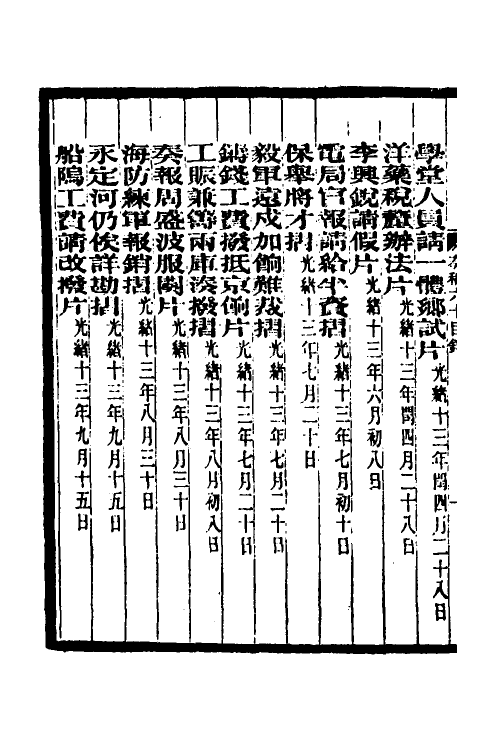 學堂人員請一體鄉試片光緒十三年閏四月二十八日
洋藥稅釐辦法片光緒十三年閏四月二十八日
李興銳請假片光緒十三年六月初八日
電局官報請給半費摺光緒十三年七月初十日
保舉將才摺光緒十三年七月二十日
毅軍遠戍加餉難裁摺光緒十三年七月二十日
鑄錢工費撥抵京餉片光緒十三年七月二十日
工賑兼籌兩庫湊撥摺光緒十三年八月初八日
奏報周盛波服闋片光緒十三年八月三十日
海防練軍報銷摺光緒十三年八月三十日
永定河仍俟詳勘摺光緒十三年九月十五日
船隖工費請改撥片光緒十三年九月十五日